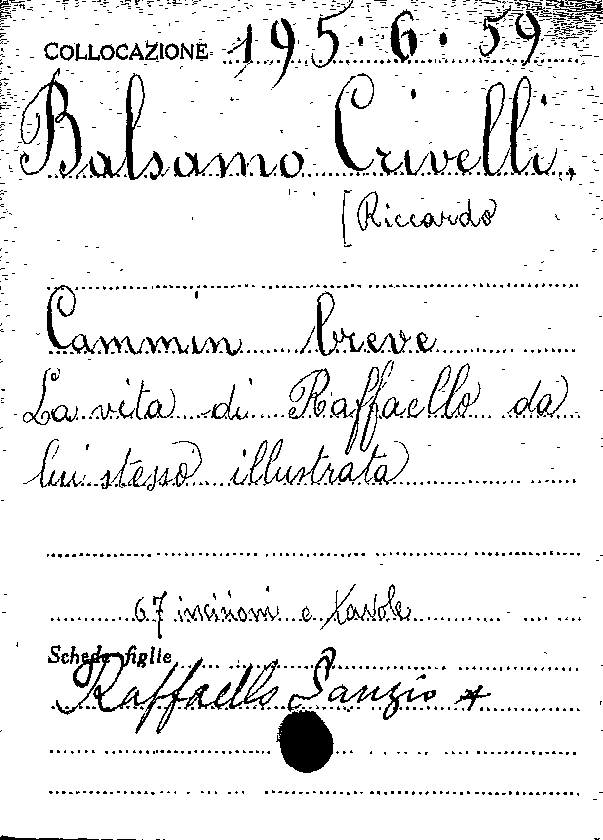 COLLOCAZIONE 195. 6. 59
Balsamo Crivelli,
[Riccardo
Cammin breve
La vita di Raffaello da
lui stesso illustrata
67 incisioni e tavole
Schede figlie
Raffaello Sanzio +